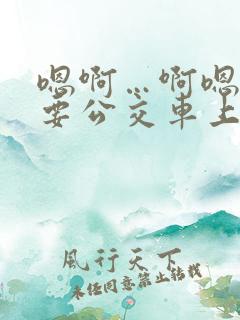 嗯啊…啊嗯
要公交车上
风行天下
未经同意禁止转载